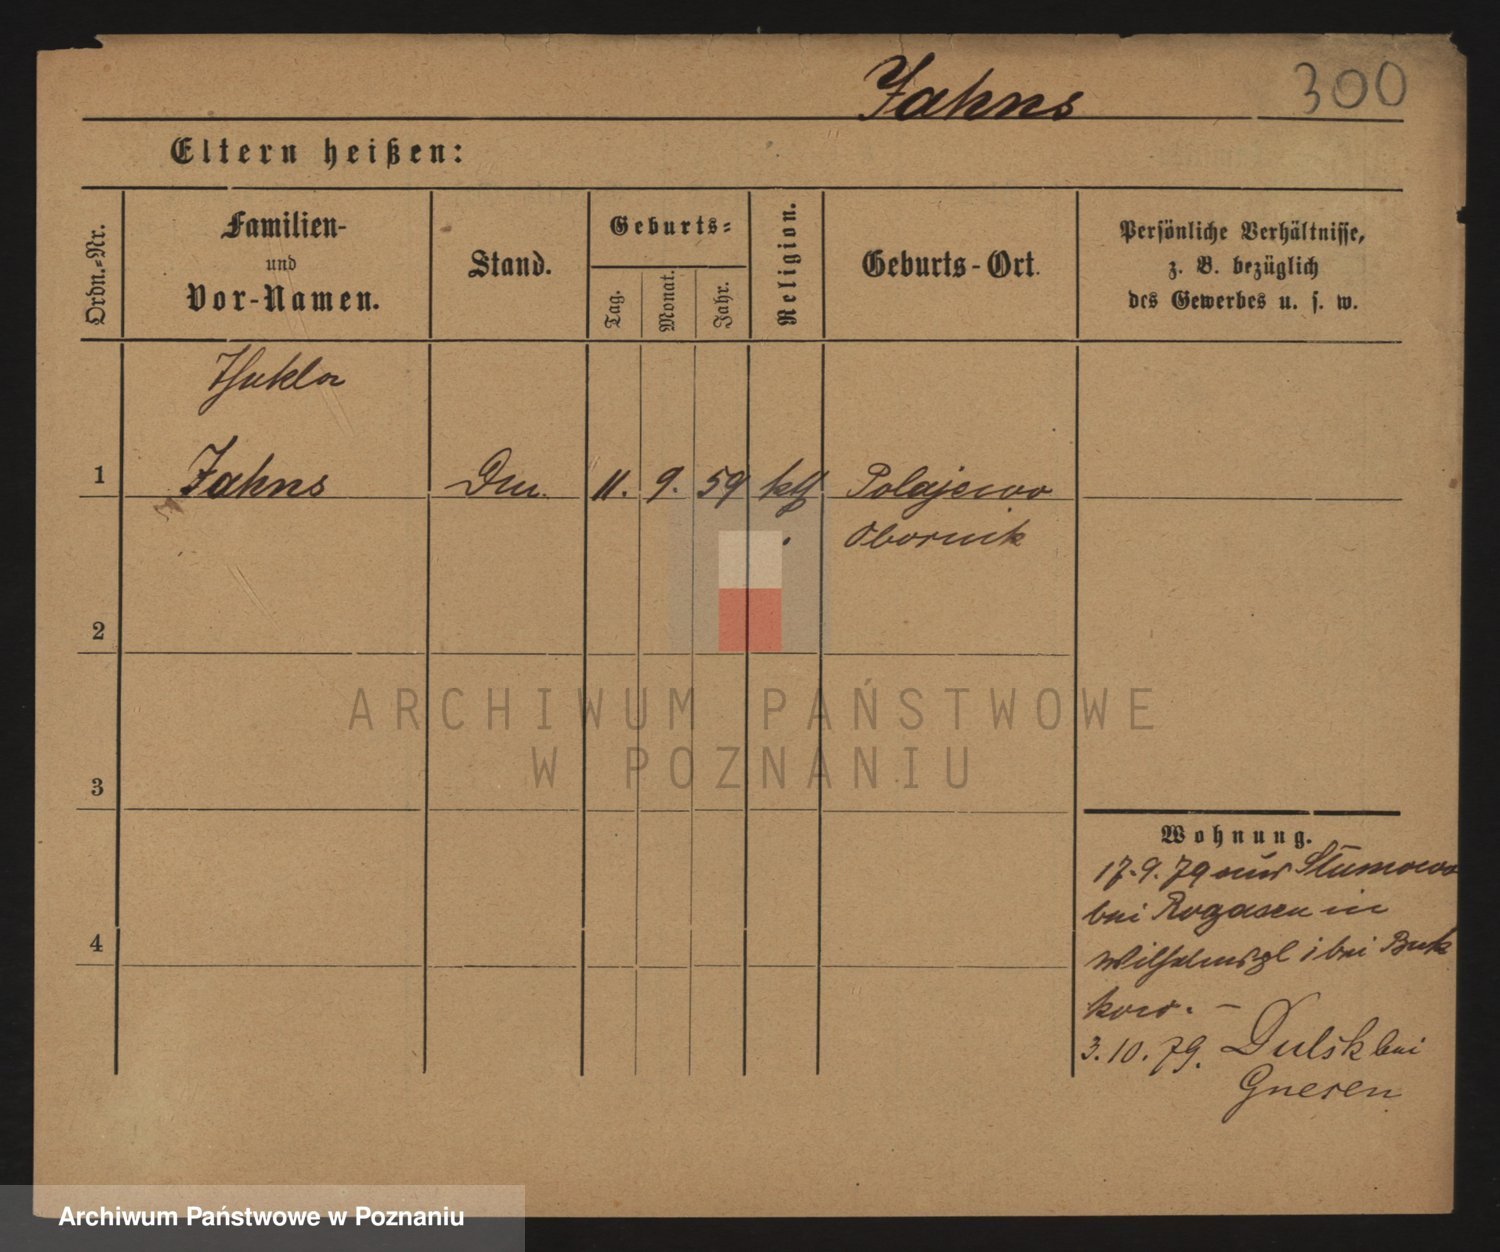 Jahns
300
Eltern heißen:
Ordn.-Nr.
Familien-
und
Vor-Namen.
Stand.
Geburts-
Tag.
Monat.
Jahr.
Religion.
Geburts-Ort.
Persönliche Verhältnisse,
z. B. bezüglich
des Gewerbes u. s. w.
Thekla
1 Jahns 11. 9. 59 kth Polajewo
Obornik
2
3
4
Wohnung.
17.9.79 aus
bei Rogasen in
bei Buk
kow. –
3.10.79. Dulsk bei
Gnesen
ARCHIWUM PAŃSTWOWE
W POZNANIU
Archiwum Państwowe w Poznaniu